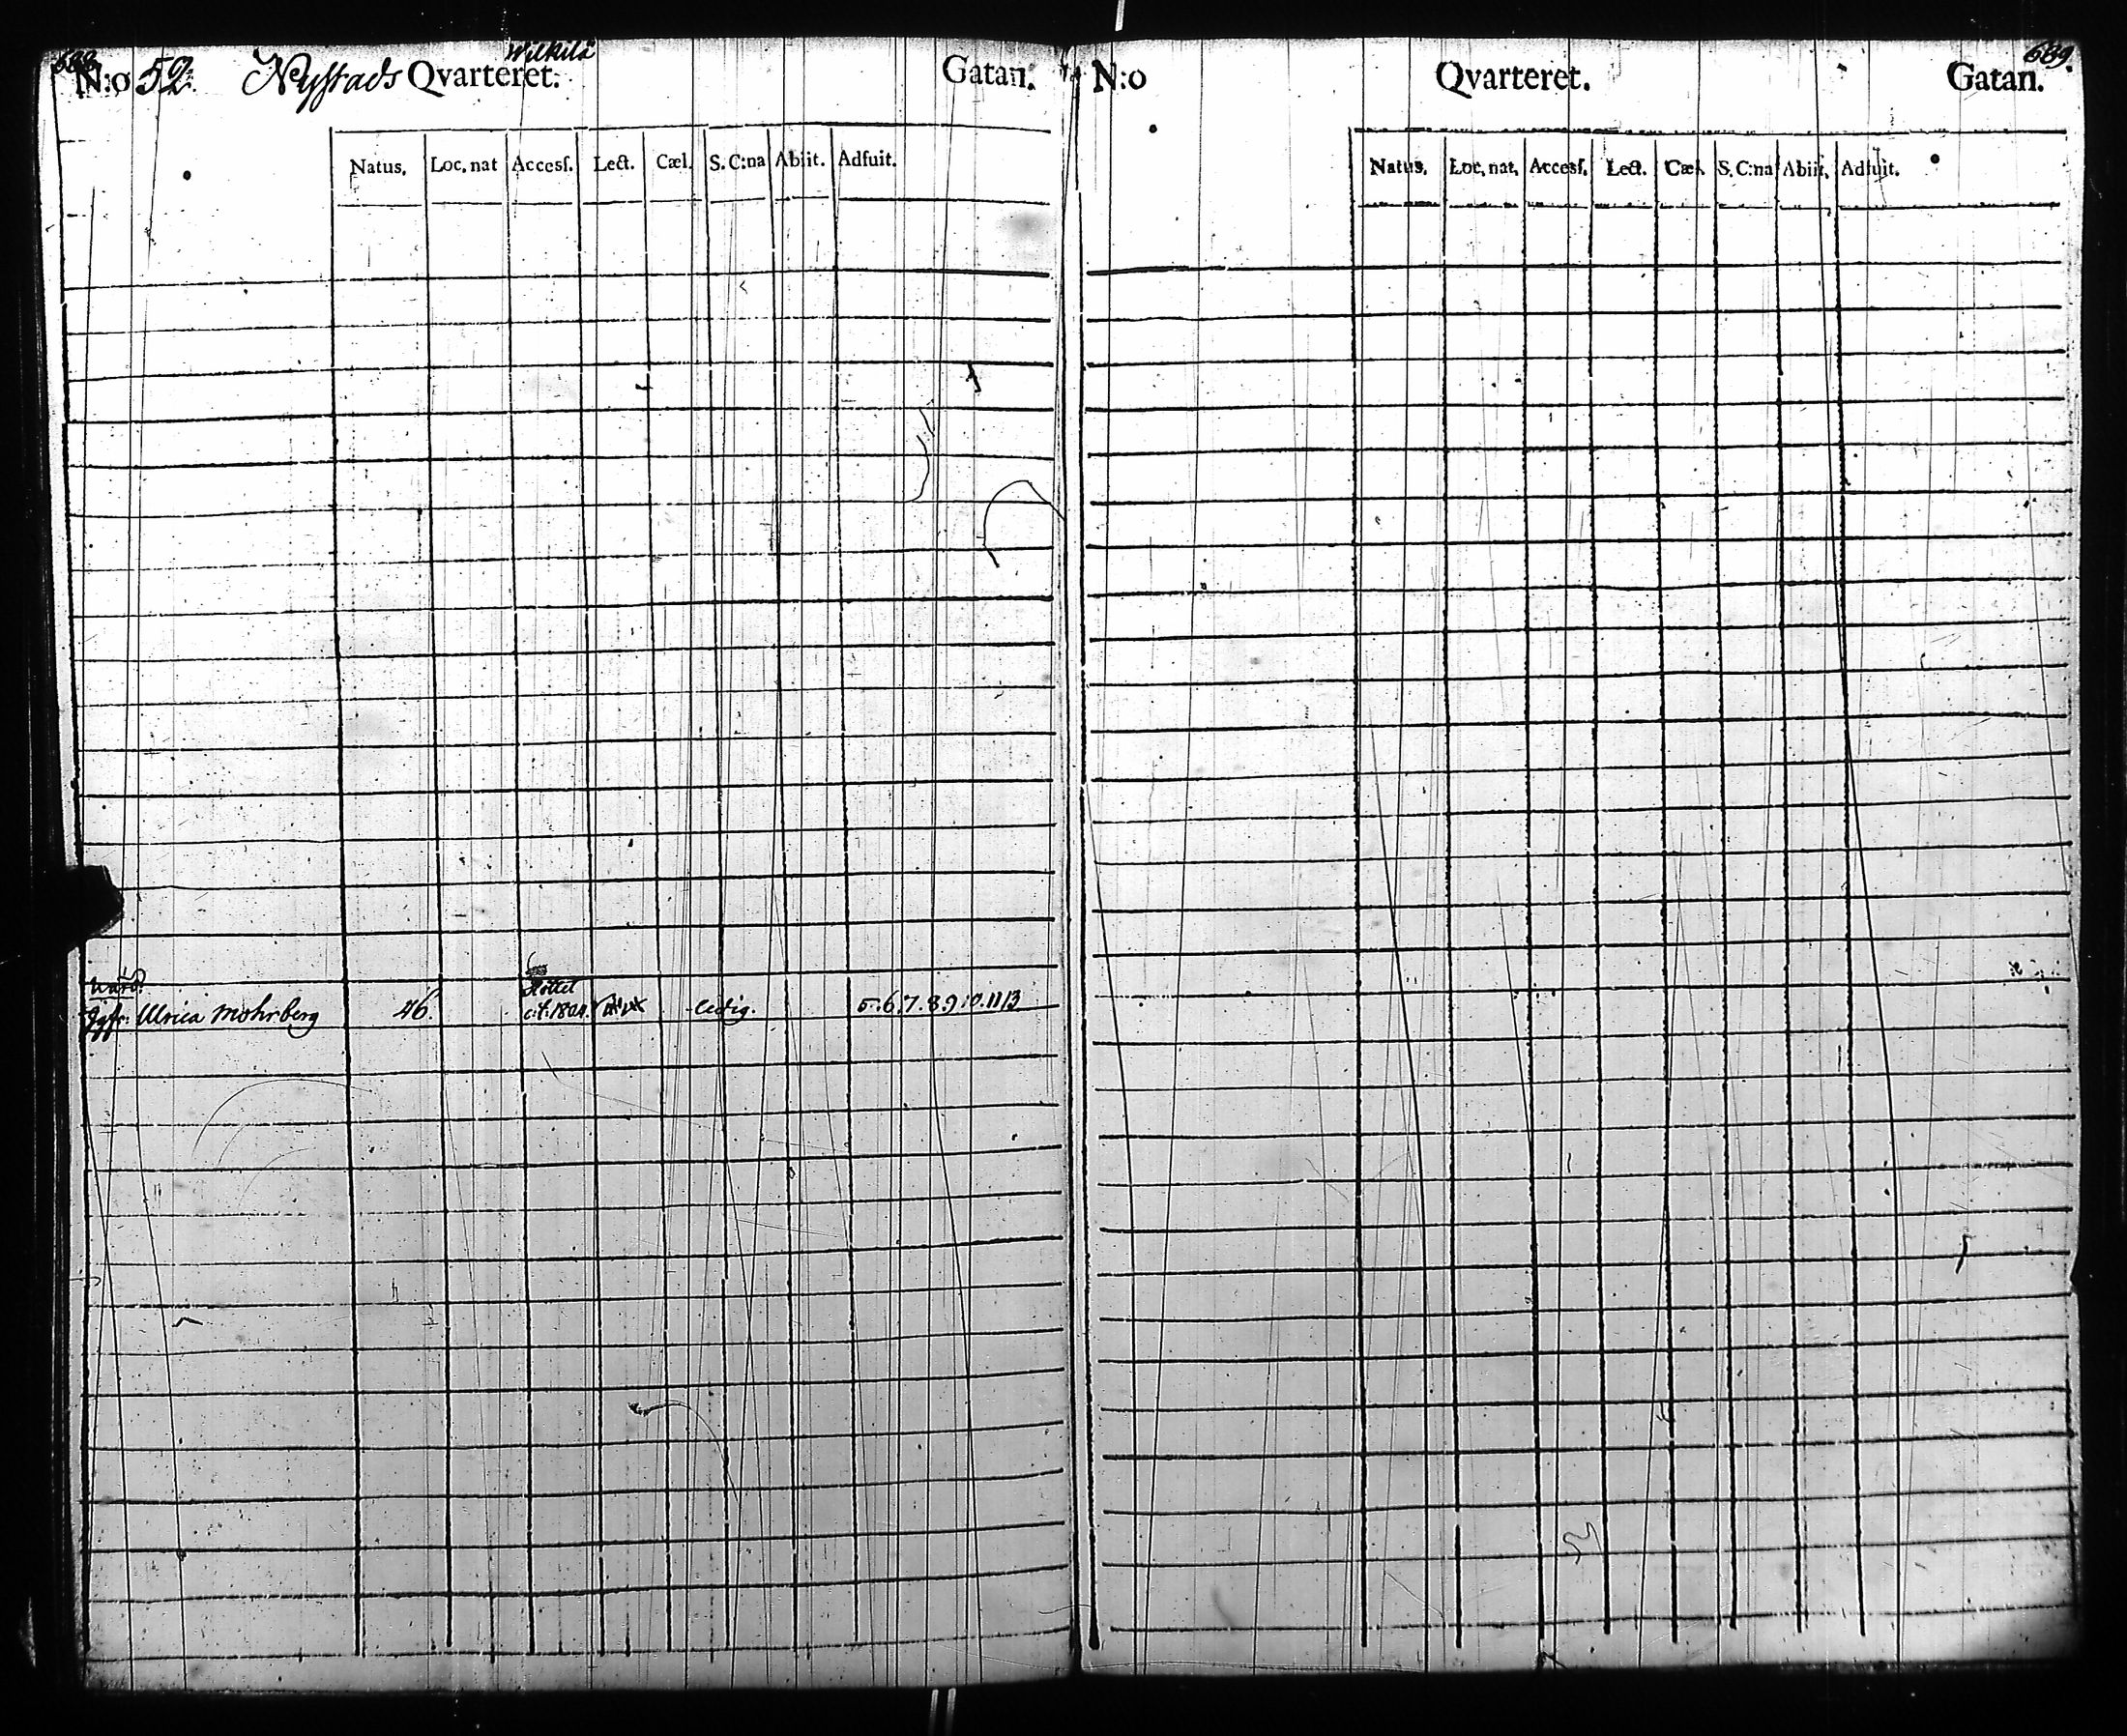 688
Wilkilä
N:o 52 Nystads Qvarteret. Gatan.
Natus. Loc. nat Accesſ. Lect. Cæl. S. C:na Abiit. Adfuit.
Slottet
Jgfr: Ulrica Mohrberg 46. 1804. ledig. 5. 6. 7. 8. 9. 10. 11 13
689.
N:o Qvarteret. Gatan.
Natus. Loc. nat. Accesſ. Lect. Cæl. S. C:na Abiit. Adfuit.